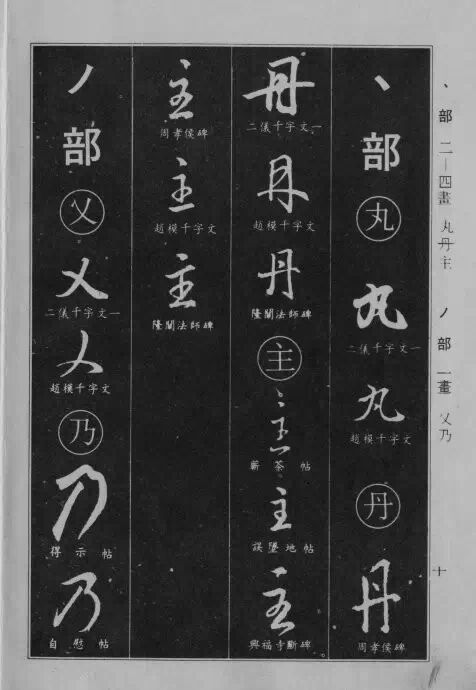 丶部 二—四畫 丸丹主 丿部 一畫 乂乃
十
丶部
丸
丸
二儀千字文一
丸
趙模千字文
丹
丹
周孝侯碑
丹
二儀千字文一
丹
趙模千字文
丹
隆闡法師碑
主
主
蘄茶帖
主
誤墜地帖
主
興福寺斷碑
主
周孝侯碑
主
趙模千字文
主
隆闡法師碑
丿部
乂
乂
二儀千字文一
乂
趙模千字文
乃
乃
得示帖
乃
自慰帖